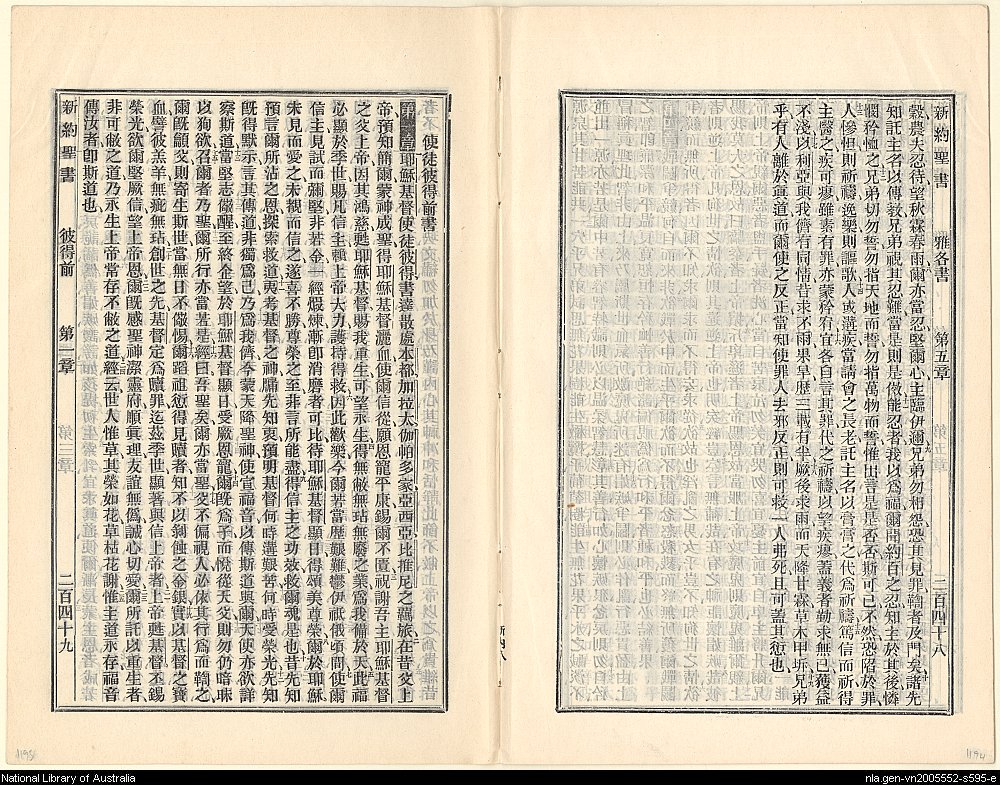 新約聖書 雅各書 第五章 二百四十八
穀農夫忍待望秋霖春雨爾亦當忍堅爾心主臨伊邇兄弟勿相怨恐其見罪鞫者及門矣諸先
知託主名以傳敎兄弟視其忍難當是則是傚能忍者我以爲福爾聞約百之忍知主於其後憐
憫矜恤之兄弟切勿誓勿指天地而誓勿指萬物而誓惟出言是是否否斯可已不然恐陷於罪
人慘怛則祈禱逸樂則謳歌人或遘疾當請會之長老託主名以膏膏之代爲祈禱篤信而祈得
主醫之疾可瘳雖素有罪亦蒙矜宥宜各自言其罪代之祈禱以望疾瘳蓋義者勤求無已獲益
不淺以利亞與我儕有同情昔求不雨果旱歷三載有半厥後求雨而天降甘霖草木甲坼兄弟
乎有人離於眞道而爾使之反正當知使罪人去邪反正則可救一人弗死且可蓋其愆也
使徒彼得前書
第一章耶穌基督使徒彼得書達散處本都加拉太伽帕多家亞西亞比推尼之羈旅在昔父上
帝預知簡爾蒙神成聖得耶穌基督灑血使爾信從願恩寵平康錫爾不匱祝謝吾主耶穌基督
之父上帝因其鴻慈甦耶穌基督賜我重生可望永生得無敝無玷無廢之業爲我備於天此福
必顯於季世賜凡信主賴上帝大力護持得救因此歡樂今爾若當歷艱難鬱伊祗俄頃間使爾
信主見試而彌堅非若金一經煆煉漸卽消磨者可比待耶穌基督顯日得頌美尊榮爾於耶穌
未見而愛之未覩而信之遂喜不勝尊榮之至非言所能盡得信主之功效救爾魂是也昔先知
預言爾所沾之恩探索救道夷考基督之神牖先知衷預明基督何時遘艱苦何時受榮光先知
旣得默示言其傳道非獨爲己乃爲我儕今蒙天降聖神使宣福音以傳斯道與爾天使亦欲詳
察斯道當堅志儆醒至終企望於耶穌基督顯日受厥恩寵爾旣爲子而悅從天父則勿仍暗昧
以狥欲召爾者乃聖爾所行亦當若是經曰吾聖矣爾亦當聖父不偏視人必依其行爲而鞫之
爾旣籲父則寄生斯世當無日不儆惕爾蹈祖愆得見贖者知不以銷蝕之金銀實以基督之寶
血譬彼羔羊無疵無玷創世之先基督定爲贖罪迄茲季世顯著與信上帝者上帝甦基督又錫
榮光欲爾堅厥信望上帝恩爾旣感聖神潔靈府順眞理友誼無僞誠心切愛爾所託以重生者
非可敝之道乃永生上帝常存不敝之道經云世人惟草其榮如花草枯花謝惟主道永存福音
傳汝者卽斯道也
新約聖書 彼得前 第一章 二百四十九
National Library of Australia
nla.gen-vn2005552-s595-e